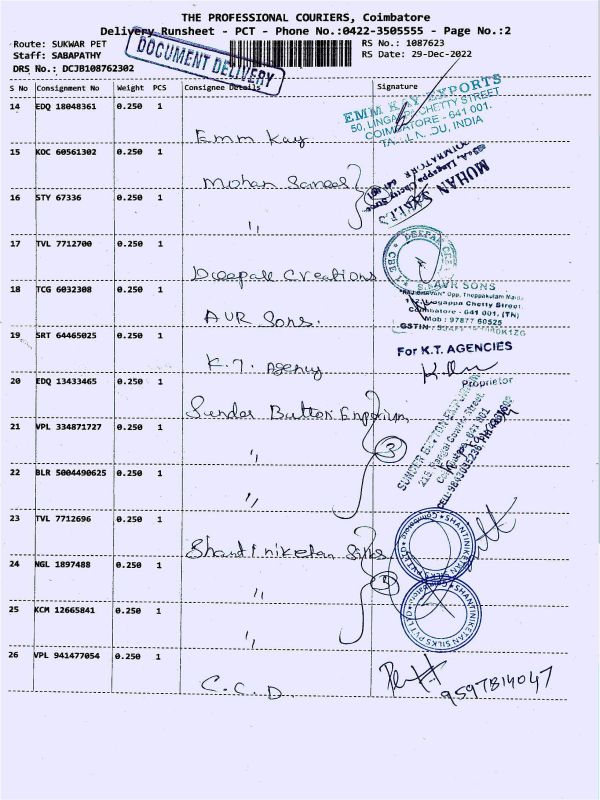 THE PROFESSIONAL COURIERS, Coimbatore
Delivery Runsheet - PCT - Phone No.:0422-3505555 - Page No.:2
Route: SUKWAR PET
RS No.: 1087623
Staff: SABAPATHY
RS Date: 29-Dec-2022
DRS No.: DCJB108762302
DOCUMENT DELIVERY
S No Consignment No Weight PCS Consignee Details Signature
14 EDQ 18048361 0.250 1
Emm Kay
EMM KAY EXPORTS
50, LINGAPPA CHETTY STREET
COIMBATORE - 641 001.
INDIA
15 KOC 60561302 0.250 1
Mohan Sarees
MOHAN SAREES
16 STY 67336 0.250 1
"
17 TVL 7712700 0.250 1
Deepak Creations
18 TCG 6032308 0.250 1
AUR Sons.
Opp. Theppakulam
Lingappa Chetty Street,
Coimbatore - 641 001. (TN)
Mob : 97877 60525
GSTIN :
19 SRT 64465025 0.250 1
K.T. Agency
For K.T. AGENCIES
Proprietor
20 EDQ 13433465 0.250 1
Sundar Button Emporium
21 VPL 334871727 0.250 1
"
3
22 BLR 5004490625 0.250 1
"
23 TVL 7712696 0.250 1
Shantiniketan Silks
SHANTINIKETAN SILKS PVT LTD
24 NGL 1897488 0.250 1
"
SHANTINIKETAN SILKS PVT LTD
25 KCM 12665841 0.250 1
"
26 VPL 941477054 0.250 1
C.C.D.
9597814047